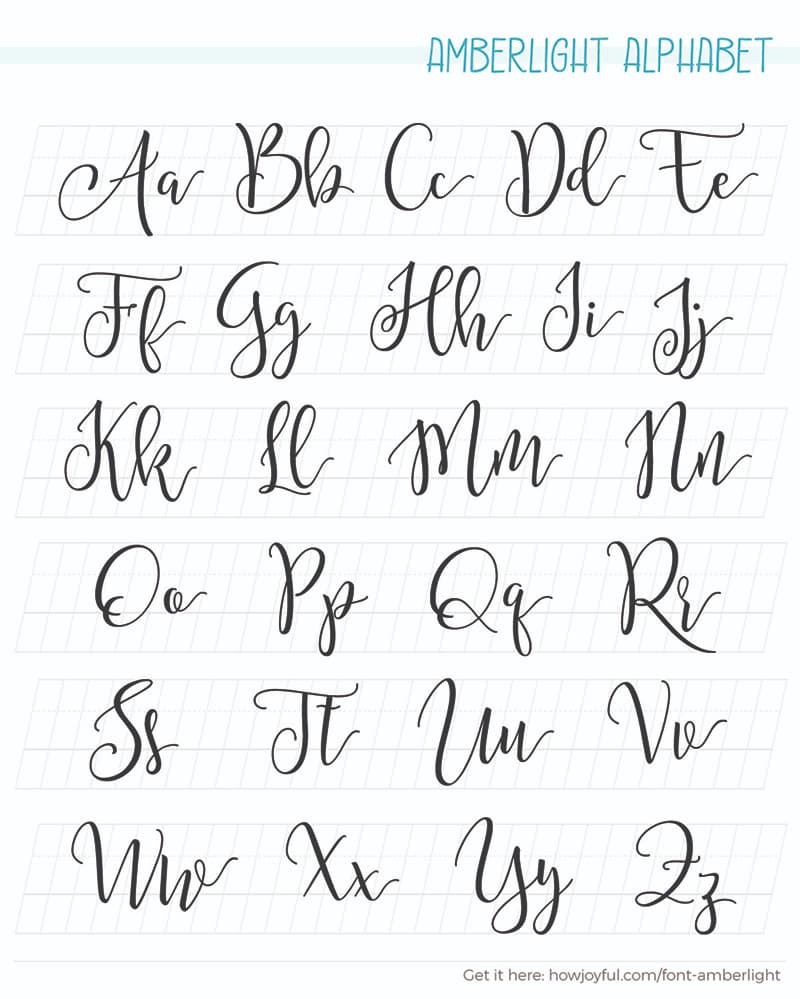 AMBERLIGHT ALPHABET
Aa Bb Cc Dd Ee
Ff Gg Hh Ii Jj
Kk Ll Mm Nn
Oo Pp Qq Rr
Ss Tt Uu Vv
Ww Xx Yy Zz
Get it here: howjoyful.com/font-amberlight